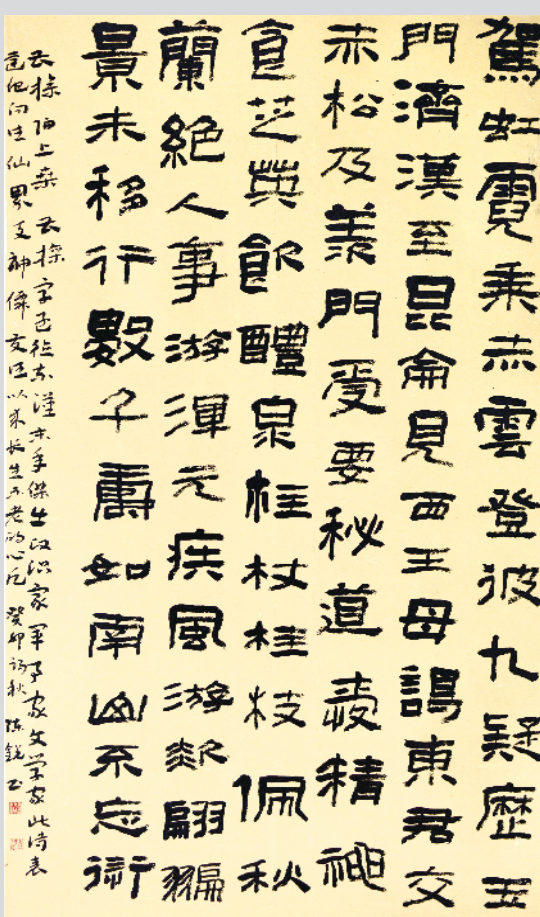 駕虹霓乘赤雲登彼九疑歷玉
門濟漢至昆侖見西王母謁東君交
赤松及羨門受要秘道愛精神
食芝英飲醴泉柱杖桂枝佩秋
蘭絕人事游渾元疾風游欻翩翩
景未移行數千壽如南山不忘愆
曹操陌上桑 曹操字孟德东漢末年傑出政治家軍事家文学家此诗表
達他向往仙界与神僊交往以求长生不老的心 癸卯初秋 陈锐书